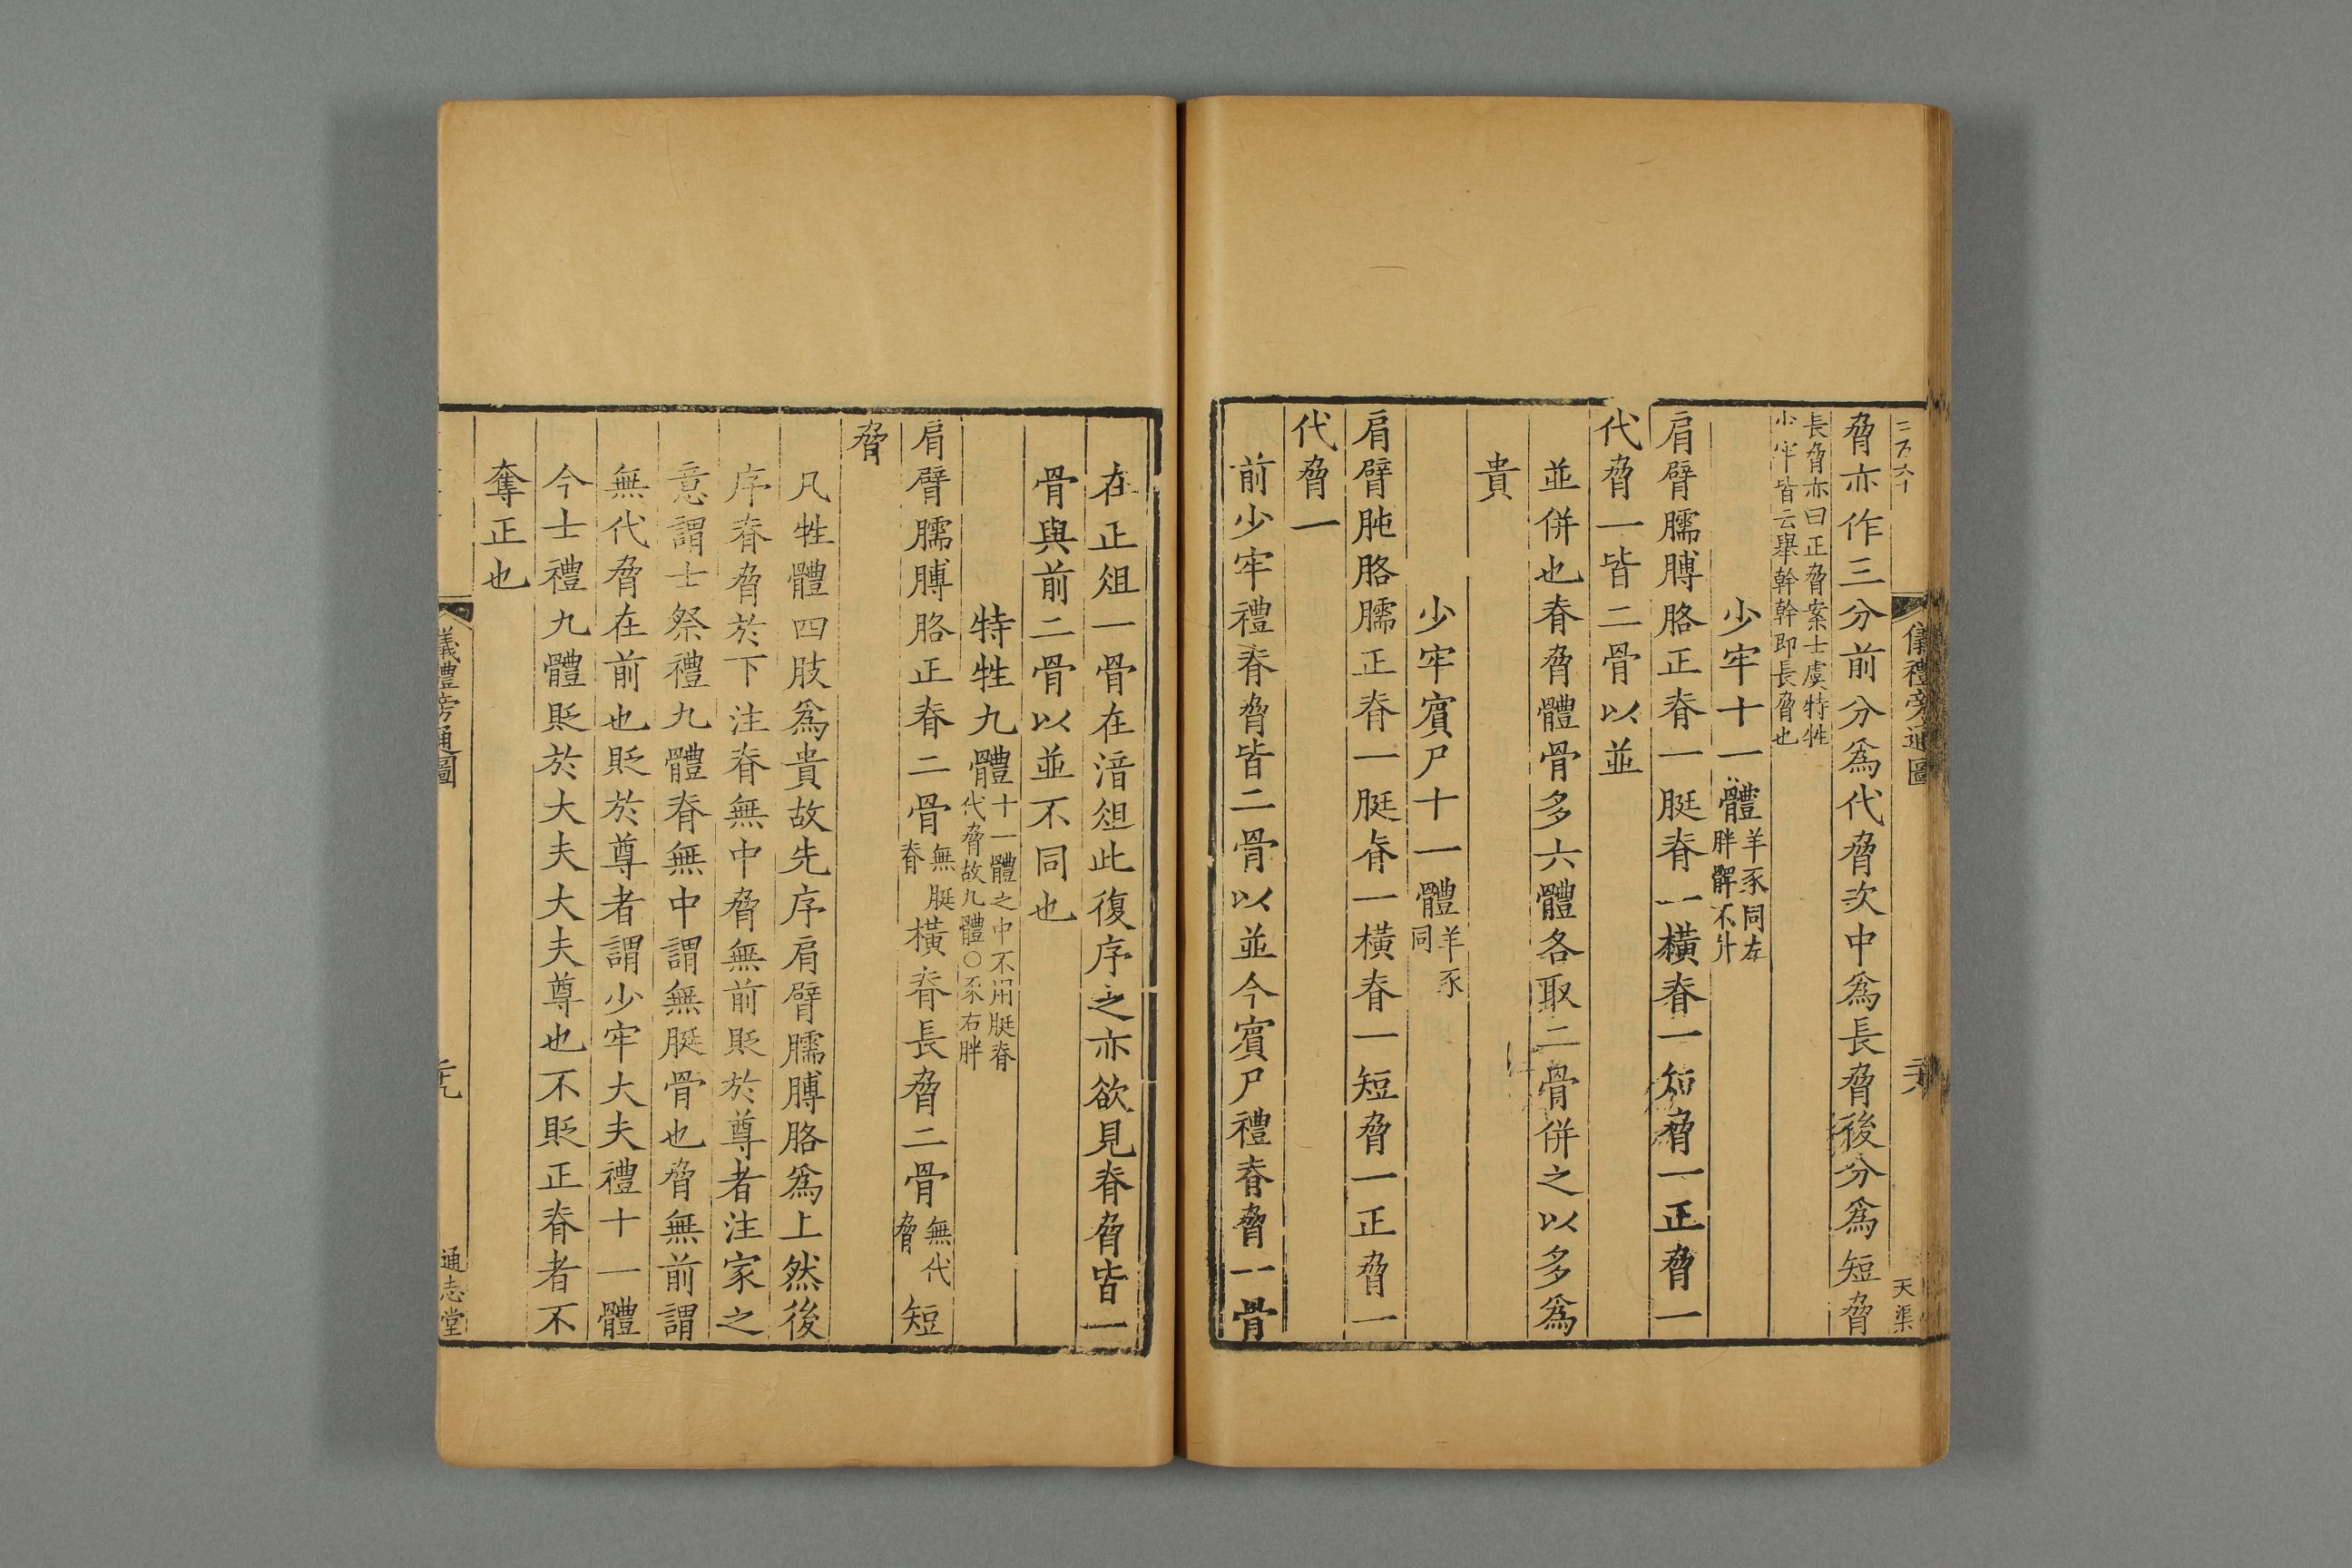 儀禮旁通圖
天渠
脅亦作三分前分爲代脅次中爲長脅後分爲短脅
長脅亦曰正脅案士虞特牲
少牢皆云舉幹幹即長脅也
少牢十一體羊豕同左胖髀不升
肩臂臑膊胳正脊一脡脊一橫脊一短脅一正脅一
代脅一皆二骨以並
並併也脊脅體骨多六體各取二骨併之以多爲
貴
少牢賓尸十一體羊豕同
肩臂肫胳臑正脊一脡脊一橫脊一短脅一正脅一
代脅一
前少牢禮脊脅皆二骨以並今賓尸禮脊脅一骨
在正俎一骨在湇俎此復序之亦欲見脊脅皆一
骨與前二骨以並不同也
特牲九體十一體之中不用脡脊代脅故九體○豕右胖
肩臂臑膊胳正脊二骨無脡脊橫脊長脅二骨無代脅短
脅
凡牲體四肢爲貴故先序肩臂臑膊胳爲上然後
序脊脅於下注脊無中脅無前貶於尊者注家之
意謂士祭禮九體脊無中謂無脡骨也脅無前謂
無代脅在前也貶於尊者謂少牢大夫禮十一體
今士禮九體貶於大夫大夫尊也不貶正脊者不
奪正也
儀禮旁通圖
通志堂